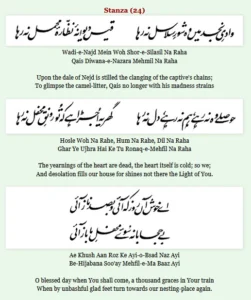 Stanza (24)
وادیٔ نجد میں وہ شورِ سلاسل نہ رہا
قیس دیوانۂ نظّارۂ محمل نہ رہا
Wadi-e-Najd Mein Woh Shor-e-Silasil Na Raha
Qais Diwana-e-Nazara Mehmil Na Raha
Upon the dale of Nejd is stilled the clanging of the captive's chains;
To glimpse the camel-litter, Qais no longer with his madness strains
حوصلے وہ نہ رہے، ہم نہ رہے، دل نہ رہا
گھر یہ اجڑا ہے کہ تو رونقِ محفل نہ رہا
Hosle Woh Na Rahe, Hum Na Rahe, Dil Na Raha
Ghar Ye Ujhra Hai Ke Tu Ronaq-e-Mehfil Na Raha
The yearnings of the heart are dead, the heart itself is cold; so we;
And desolation fills our house for shines not there the Light of You.
اے خوش آں روز کہ آئی و بصد ناز آئی
بے حجابانہ سوئے محفلِ ما باز آئی
Ae Khush Aan Roz Ke Ayi-o-Bsad Naz Ayi
Be-Hijabana Soo'ay Mehfil-e-Ma Baaz Ayi
O blessed day when You shall come, a thousand graces in Your train
When by unbashful glad feet turn towards our nestling place again.